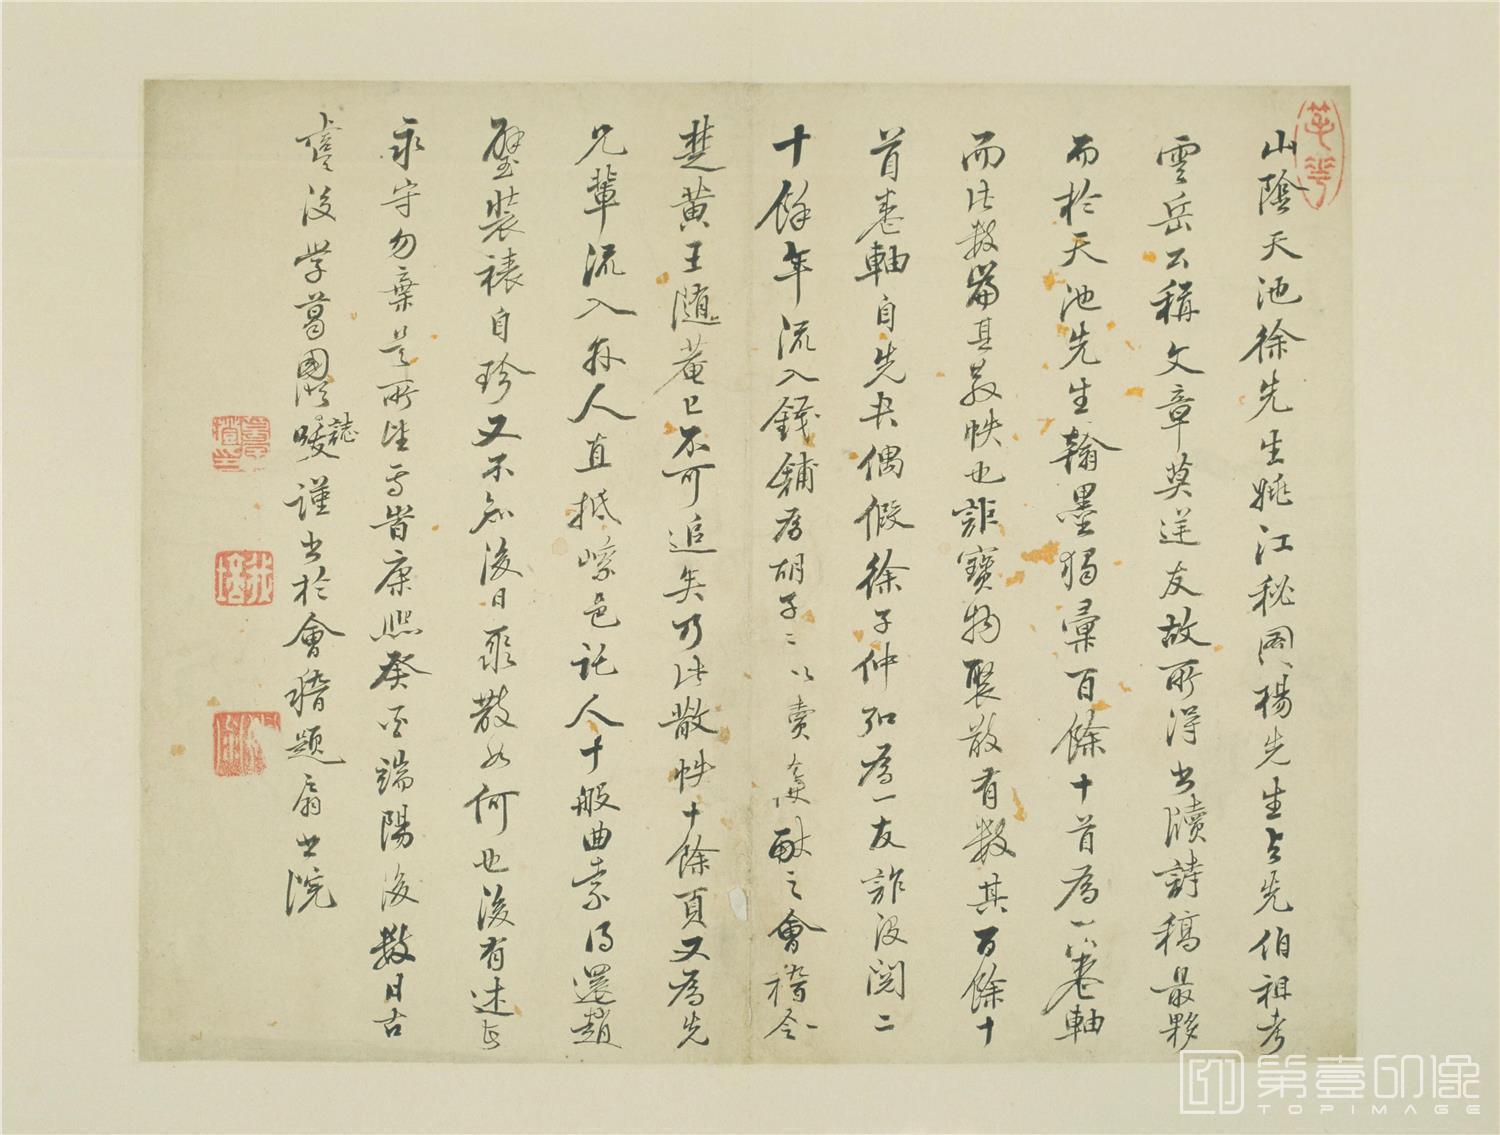 山陰天池徐先生姚江秘圖楊先生與先伯祖考
雲岳公稱文章莫逆友故所得書牘詩稿最夥
而於天池先生翰墨獨彙百餘十首為一卷軸
而此數篇其散帙也詎寶物聚散有數其百餘十
首卷軸自先夫偶假徐子仲弘為一友詐沒閱二
十餘年流入錢鋪為胡子〻以賣酬之會稽令
楚黃王隨菴已不可追矣乃此散帙十餘頁又為先
兄輩流入人直抵嵊邑託人十般曲索得還趙
璧裝裱自珍又不知後日聚散如何也後有述者
永守勿棄是所望焉時康熙癸酉端陽後數日古
虞後學葛國謹書於會稽題扇書院
誌
第壹印像
TOPIMAGE